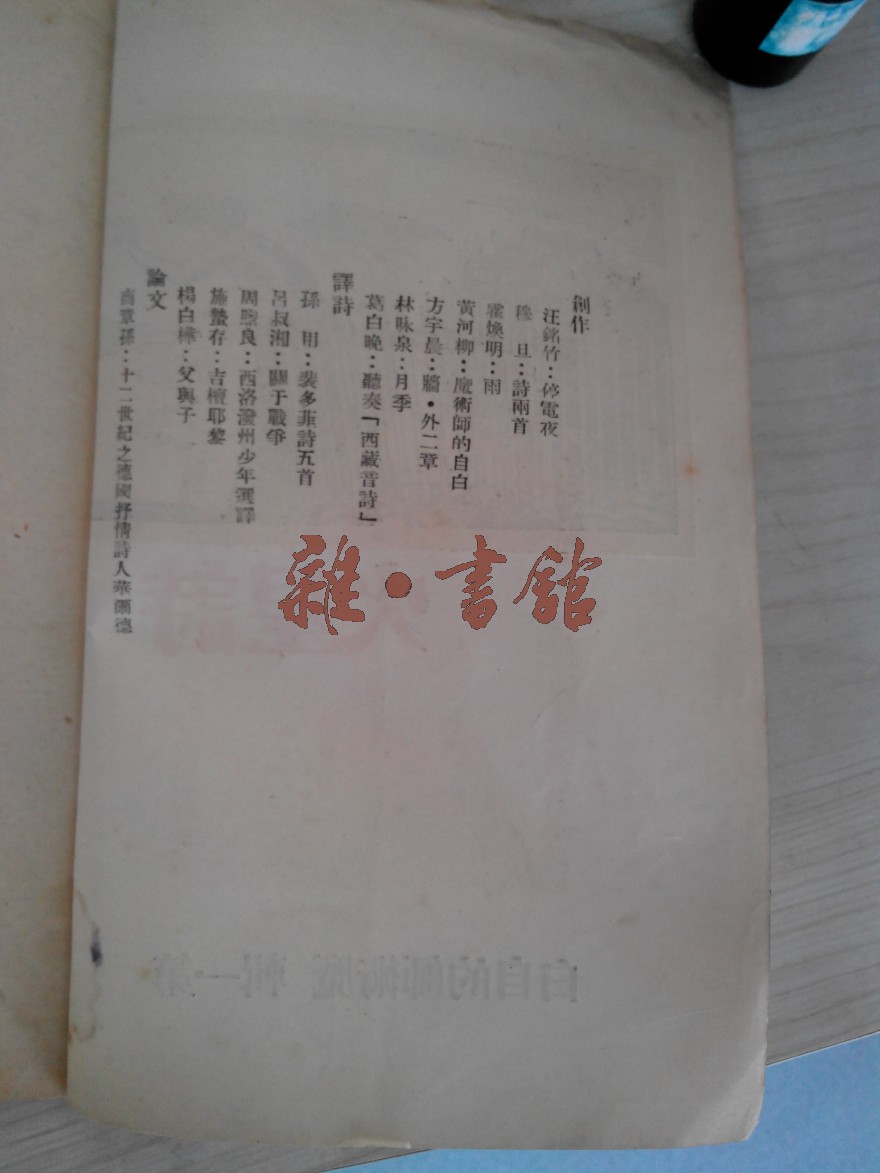 創作
汪銘竹：停電夜
穆　旦：詩兩首
霍煥明：雨
黃河柳：魔術師的自白
方宇晨：牆・外二章
林咏泉：月季
葛白晚：聽奏「西藏音詩」
譯詩
孫　用：裴多菲詩五首
呂叔湘：關于戰爭
周煦良：西洛潑州少年選譯
施蟄存：吉檀耶黎
楊白樺：父與子
論文
商章孫：十二世紀之德國抒情詩人華爾德
雜・書館
第一輯 魔術師的自白